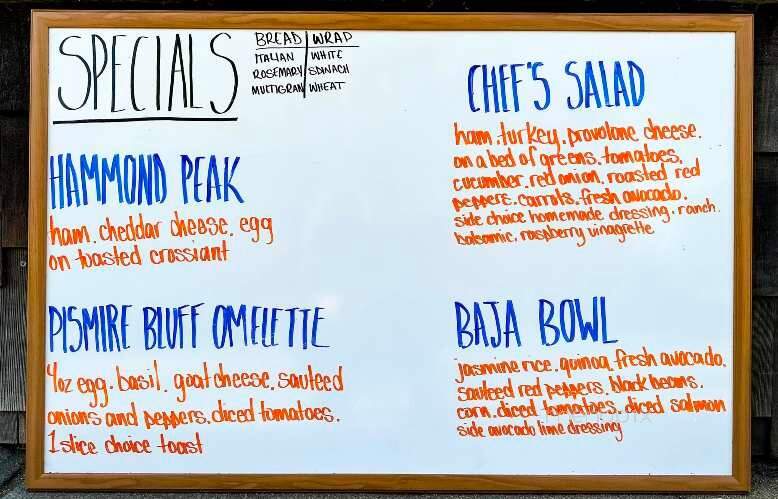 SPECIALS
BREAD WRAP
ITALIAN WHITE
ROSEMARY SPINACH
MULTIGRAN WHEAT
HAMMOND PEAK
ham. cheddar cheese. egg
on toasted crossiant
PISMIRE BLUFF OMELETTE
4oz egg. basil. goat cheese. sauteed
onions and peppers. diced tomatoes.
1 slice choice toast
CHEF'S SALAD
ham. turkey. provolone cheese.
on a bed of greens. tomatoes.
cucumber. red onion. roasted red
peppers. carrots. fresh avocado.
side choice homemade dressing. ranch.
balsamic. raspberry vinagrette
BAJA BOWL
jasmine rice. quinoa. fresh avocado.
sauteed red peppers. black beans.
corn. diced tomatoes. diced salmon
side avocado lime dressing